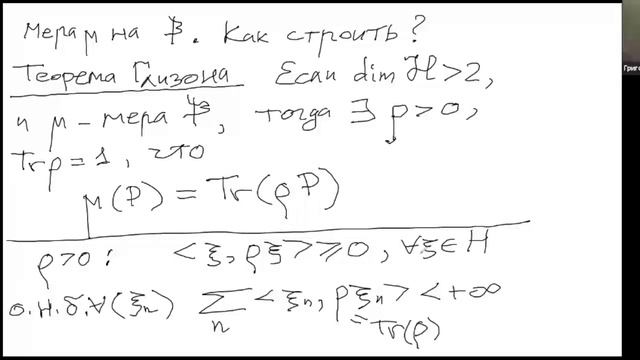 Мера μ на 𝔓. Как строить?
Теорема Глизона Если dim ℋ > 2,
и μ – мера 𝔓, тогда ∃ ρ > 0,
Tr ρ = 1, что
μ(P) = Tr(ρP)
ρ > 0 : <ξ, ρξ> ⩾ 0, ∀ξ ∈ H
о.н.б. ∀(ξₙ) ∑ₙ <ξₙ, ρξₙ> < +∞
= Tr(ρ)
Григо